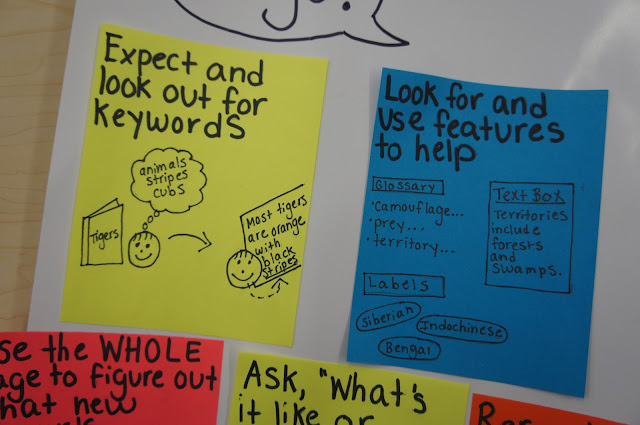 go!
Expect and
look out for
keywords
animals
stripes
cubs
Tigers
Most tigers
are orange
with
black
stripes
Look for and
use features
to help
Glossary
• camouflage...
• prey...
• territory...
Text Box
Territories
include
forests
and
swamps.
Labels
Siberian
Indochinese
Bengal
se the WHOLE
age to figure out
hat new
Ask, "What's
it like or